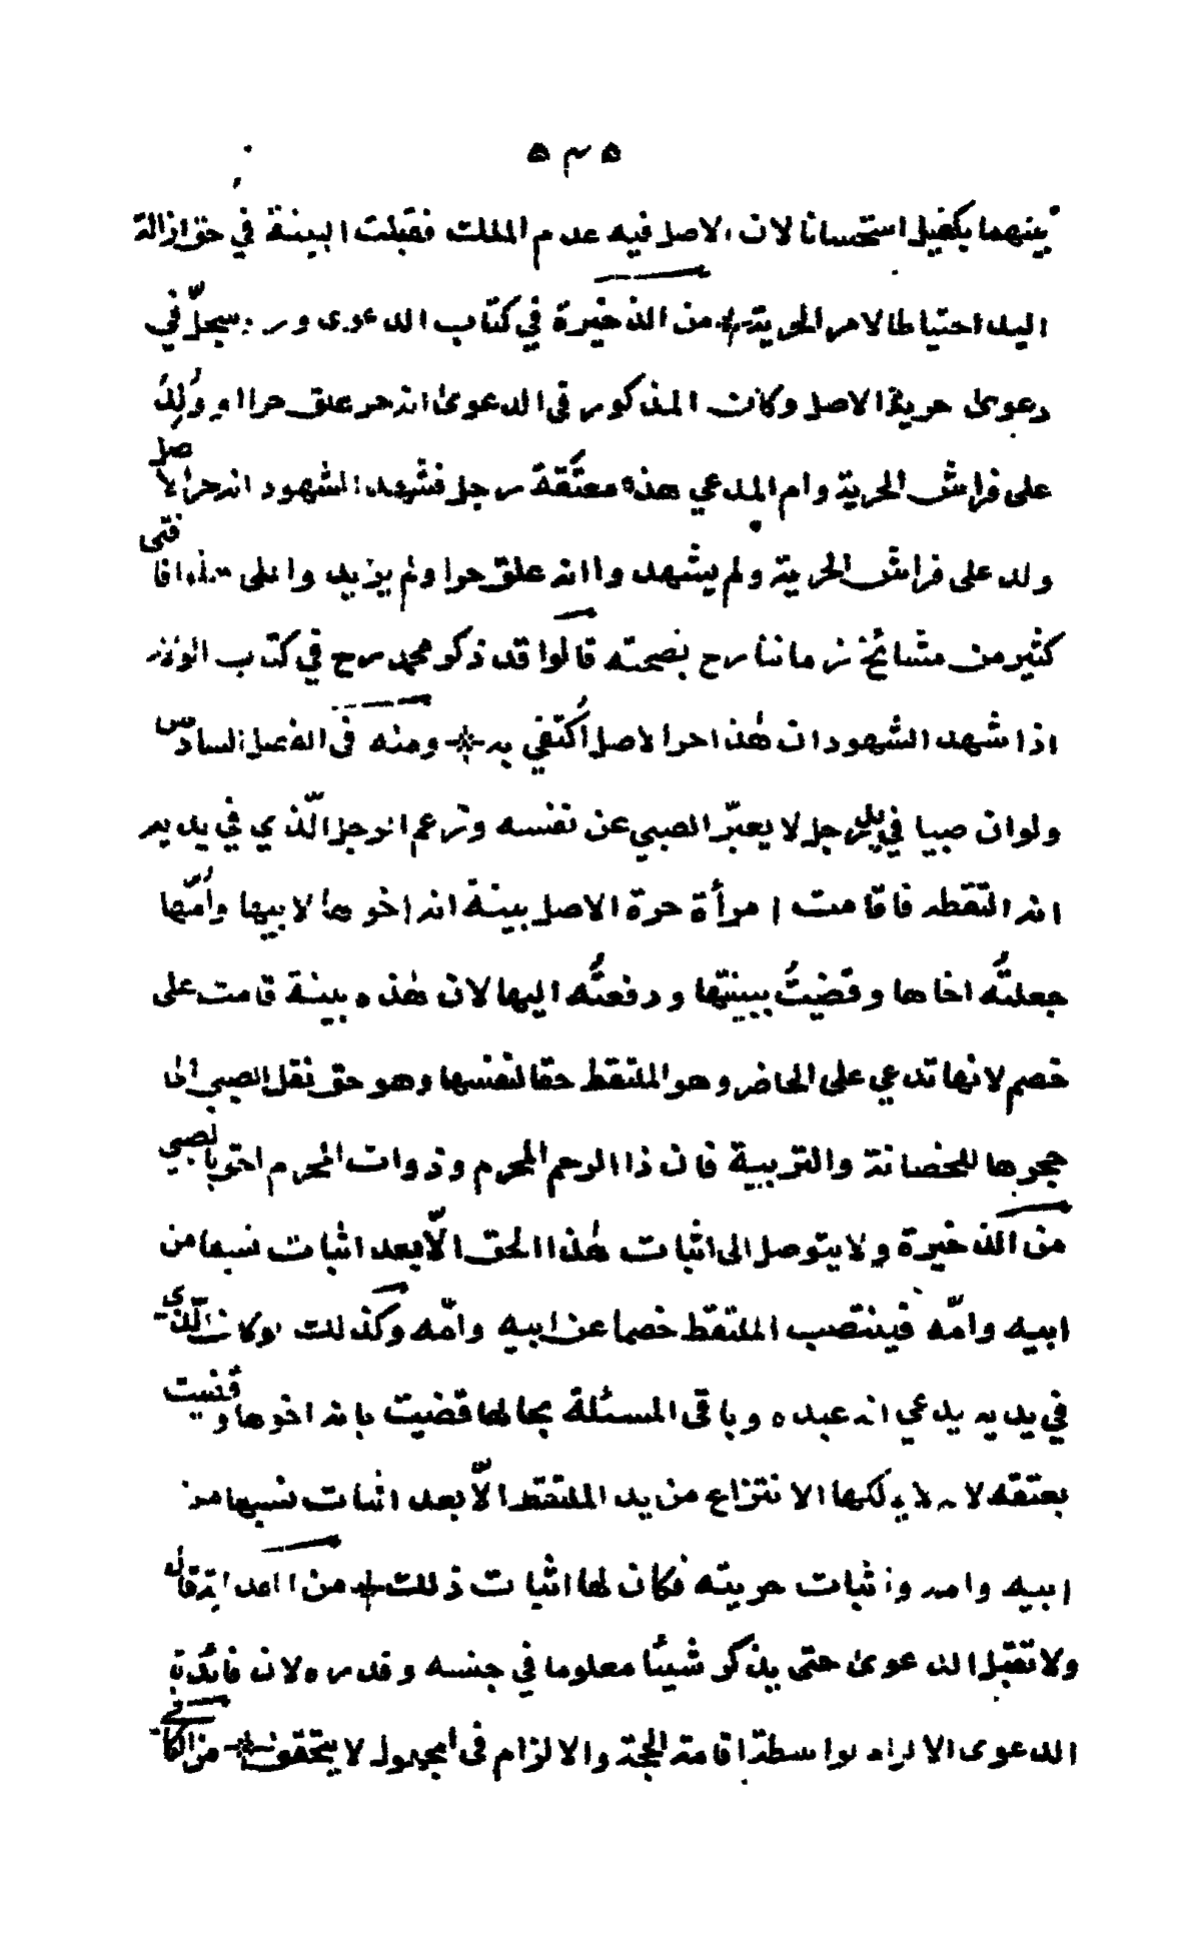 ٥٣٥
بينهما بكفيل استحسانا لان الاصل فيه عدم الملك فقبلت البينة في حق ازالة
اليد احتياطا لامر الحرية * من الذخيرة في كتاب الدعوى ورد سجل في
دعوى حرية الاصل وكان المذكور في الدعوى انه حر علق حرا وولد
على فراش الحرية وام المدعي هذه معتقة رجل فشهد الشهود انه حر الاصل
ولد على فراش الحرية ولم يشهدوا انه علق حرا ولم يزيدوا على هذا افتى
كثير من مشائخ زماننا رح بصحته قالوا قد ذكر محمد رح في كتاب الولاء
اذا شهد الشهود ان هذا حر الاصل اكتفي به * ومنه في الفصل السادس
ولو ان صبيا في يد رجل لا يعبّر الصبي عن نفسه وزعم الرجل الّذي في يديه
انه التقطه فاقامت امرأة حرة الاصل بينة انه اخوها لابيها وأمّها
جعلتُه اخاها وقضيتُ ببينتها ودفعتُه اليها لان هذه بينة قامت على
خصم لانها تدعي على الحاضر وهو الملتقط حقا لنفسها وهو حق نقل الصبي الى
حجرها للحضانة والتربية فان ذا الرحم المحرم وذوات المحرم احق بالصبي
من الذخيرة ولا يتوصل الى اثبات هذا الحق الّا بعد اثبات نسبها من
ابيه وامّه فينتصب الملتقط خصما عن ابيه وامّه وكذلك لو كان الّذي
في يديه يدعي انه عبده وباقي المسئلة بحالها قضيت بانه اخوها وقضيت
بعتقه لانه لا يمكنها الانتزاع من يد الملتقط الّا بعد اثبات نسبها من
ابيه وامه واثبات حريته فكان لها اثبات ذلك * من الهداية قال
ولا تقبل الدعوى حتى يذكر شيئا معلوما في جنسه وقدره لان فائدة
الدعوى الالزام بواسطة اقامة الحجة والالزام في المجهول لا يتحقق * من الكافي